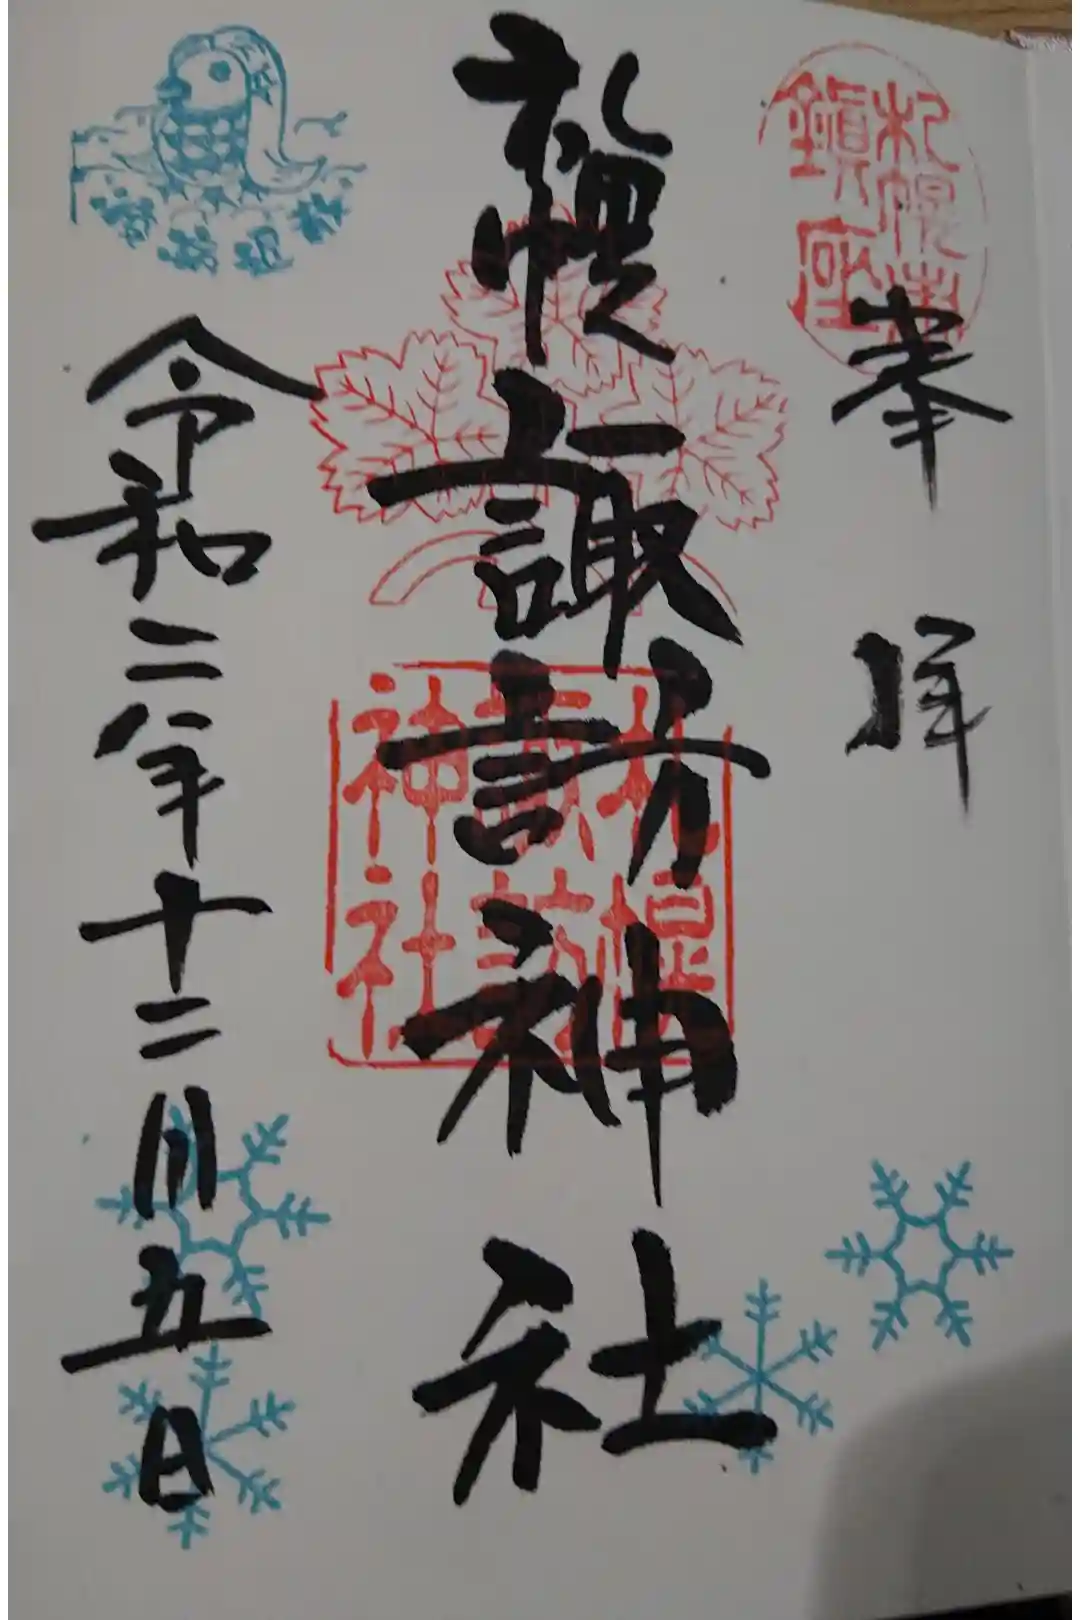 奉拝
札幌諏訪神社
令和二年十二月五日
札幌
鎮座
札幌
諏訪
神社